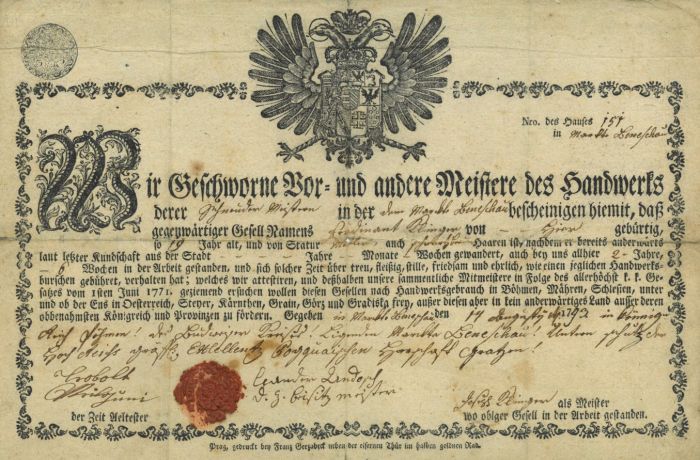 Nro. des Hauses 151
in Markt Beneschau
Wir Geschworne Vor- und andere Meistere des Handwerks
derer Schneider Meistern in der dem Markt Beneschau bescheinigen hiemit, daß
gegenwärtiger Gesell Namens Ferdinant Klinger von Hier gebürtig,
so 19 Jahr alt, und von Statur Haaren ist, nachdem er bereits anderwärts
laut letzter Kundschaft aus der Stadt Jahre Monate Wochen gewandert, auch bey uns allhier 2 Jahre,
6 Wochen in der Arbeit gestanden, und sich solcher Zeit über treu, fleißig, stille, friedsam und ehrlich, wie einen jeglichen Handwerks-
burschen gebühret, verhalten hat; welches wir attestiren, und deßhalben unsere sammentliche Mitmeistere in Folge des allerhöchst k. k. Ge-
satzes vom 1sten Juni 1771 geziemend ersuchen wollen diesen Gesellen nach Handwerksgebrauch in Böhmen, Mähren, Schlesien, unter
und ob der Ens in Oesterreich, Steyer, Kärnthen, Grain, Görz und Gradiska frey, außer diesen aber in kein anderwärtiges Land ausser deren
obbenahmsten Königreich und Provinzen zu fördern. Gegeben in Markt Beneschau den 14 Augusti 1792 in König-
Reich Böhmen! des Budweyser Kreises! Markts Beneschau! Unter
Excellentz Bouquaischen Herschaft Gratzen!
Klinger als Meister
der Zeit Aeltester wo obiger Gesell in der Arbeit gestanden.
Prag, gedruckt bey Franz Gerzabeck neben der eisernen Thür im halben goldnen Rad.